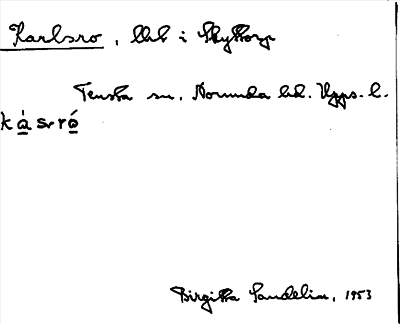 Karlsro, lht i Skyttorp
Tensta sn. Norunda hd. Upps. l.
kàsrró
Birgitta Sandelin, 1953